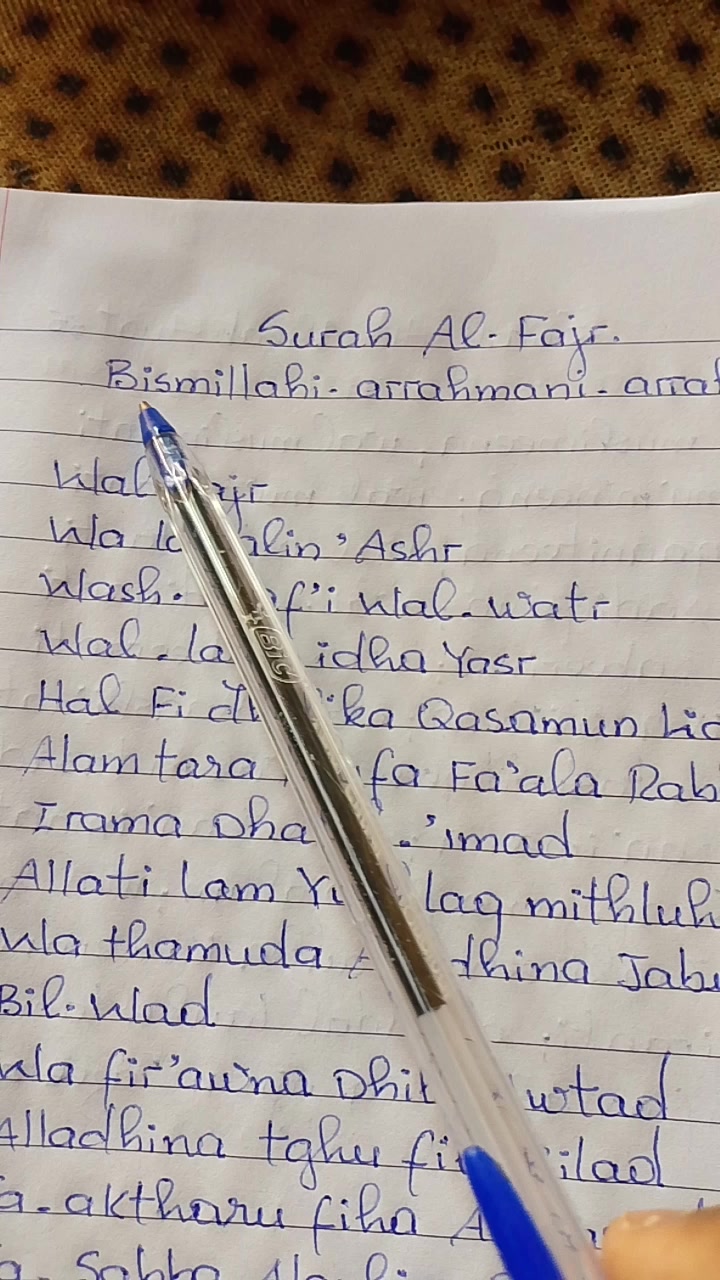 Surah Al-Fajr.
Bismillahi-arrahmani-arra
Wal ajr
Wa la alin 'Ashr
Wash. af'i Wal-watr
Wal-la idha Yasr
Hal Fi dh ika Qasamun Li
Alam tara fa Fa'ala Rab
Irama Dha -'imad
Allati Lam Yu laq mithluh
Wa thamuda dhina Jab
Bil-Wad
Wa fir'awna Dhil wtad
Alladhina tghu fi ilad
a-aktharu fiha A
a. Sabba
BIC